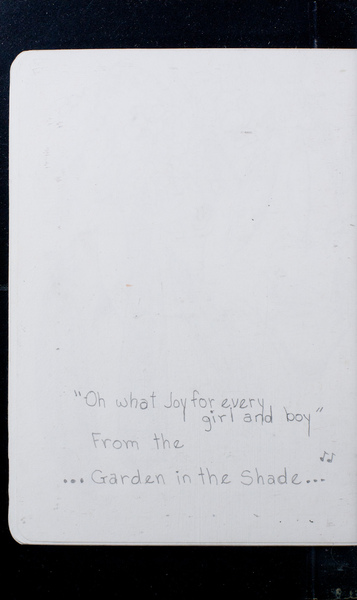 "Oh what Joy for every
girl and boy"
From the
... Garden in the Shade...